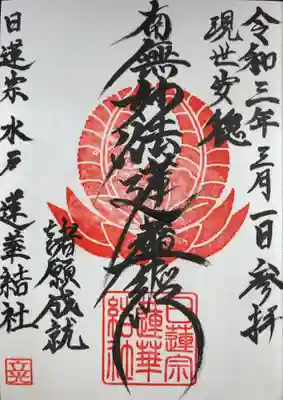 令和三年三月一日参拝
現世安穏
南無妙法蓮華経
諸願成就
日蓮宗 水戸 蓮華結社
日蓮宗
蓮華
結社